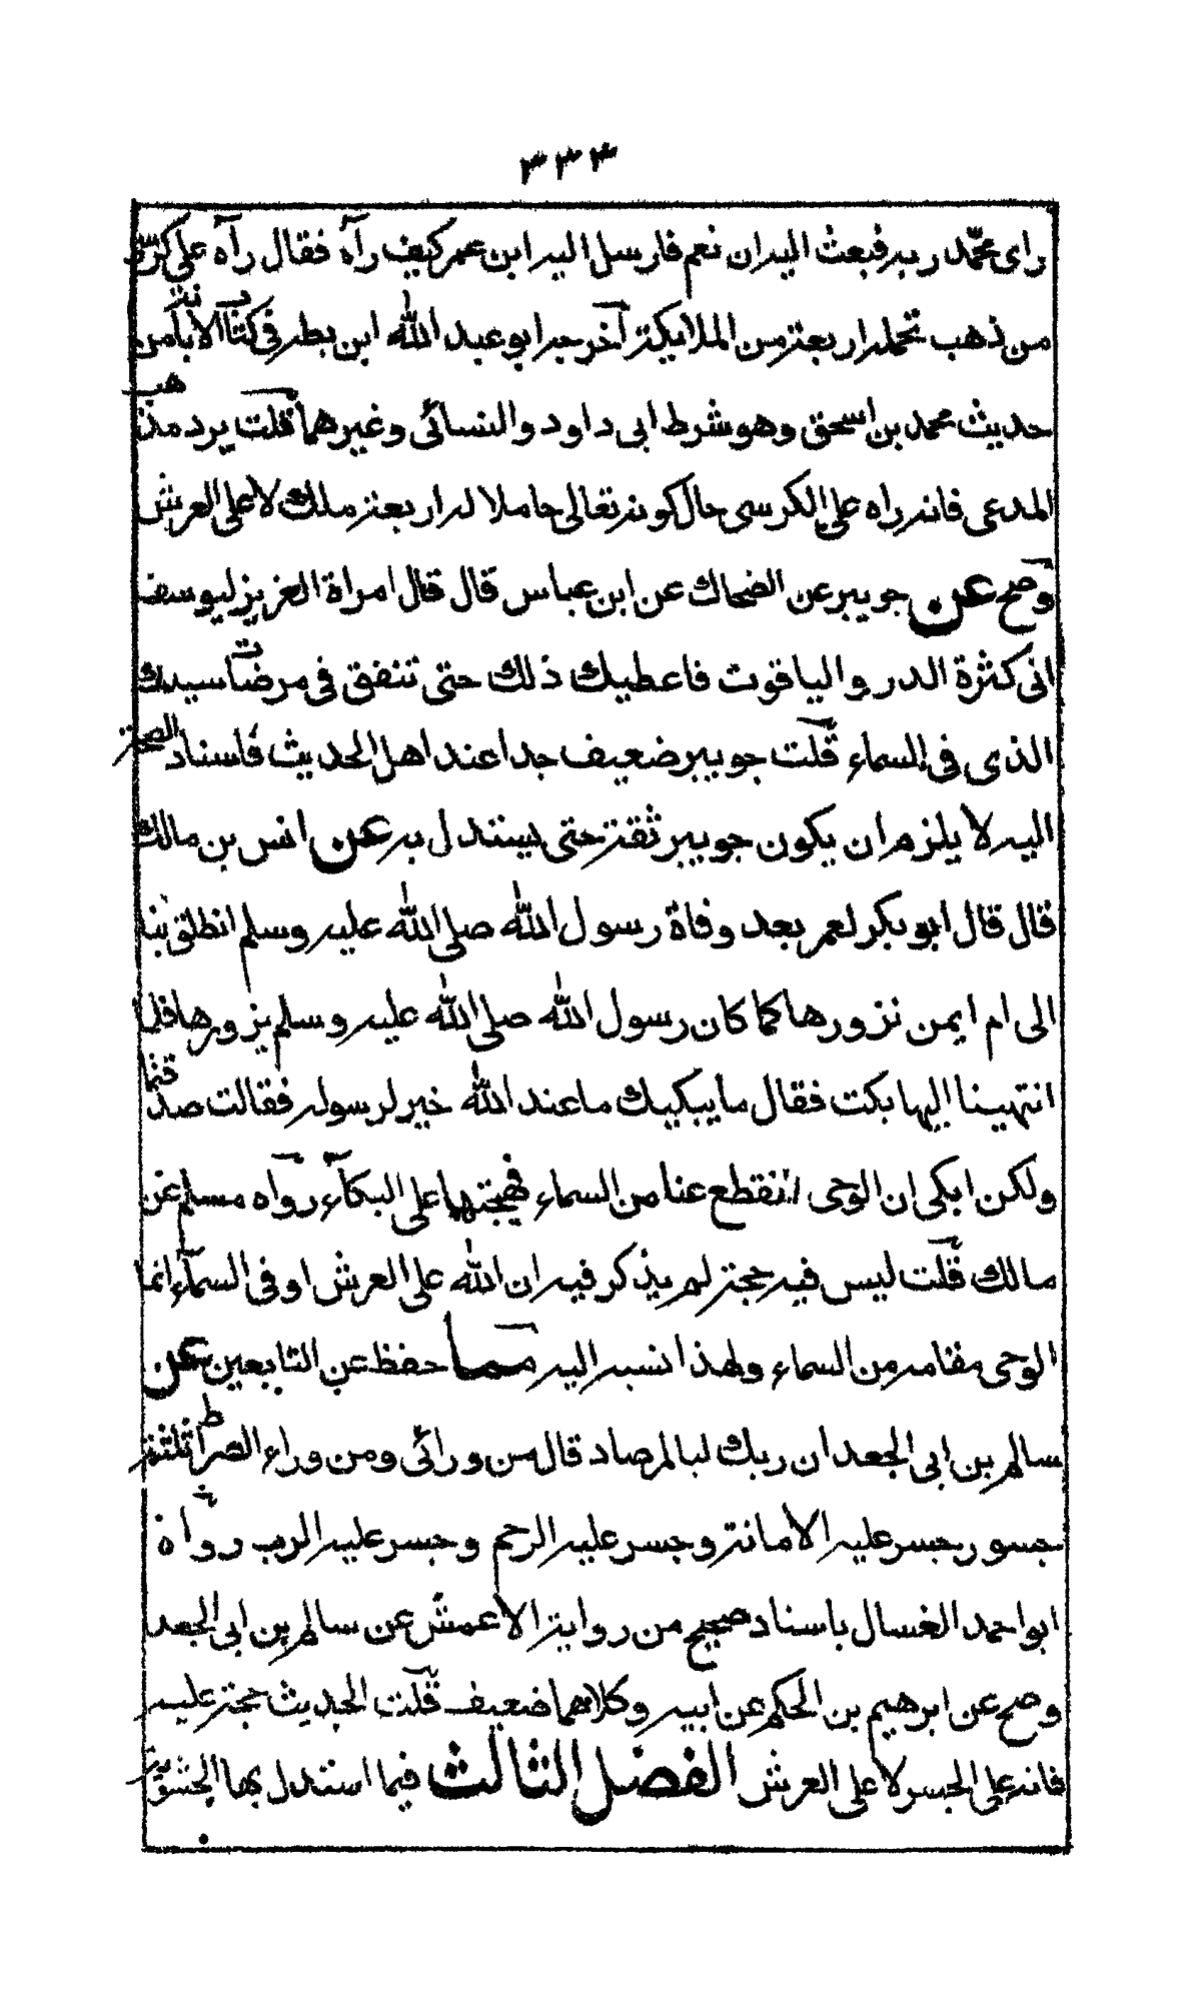 ٣٣٣
راى محمّد ربه فبعث اليه ان نعم فارسل اليه ابن عمر كيف رآه فقال رآه على كرسى
من ذهب تحمله اربعة من الملايكة آخرجه ابو عبد الله ابن بطه فى كتاب الابانة من
حديث محمد بن اسحق وهو شرط ابى داود والنسائى وغيرهما قلت يرد مذهب
المدعى فانه راه على الكرسى حال كونه تعالى حاملا له اربعة ملك لا على العرش
وصح عن جويبر عن الضحاك عن ابن عباس قال قال امراة العزيز ليوسف
انى كثرة الدر والياقوت فاعطيك ذلك حتى تنفق فى مرضات سيدك
الذى فى السماء قلت جويبر ضعيف جدا عند اهل الحديث فاسناد الصحة
اليه لا يلزم ان يكون جويبر ثقة حتى يستدل به عن انس بن مالك
قال قال ابو بكر لعمر بعد وفاة رسول الله صلى الله عليه وسلم انطلق بنا
الى ام ايمن نزورها كما كان رسول الله صلى الله عليه وسلم يزورها فلما
انتهينا اليها بكت فقال ما يبكيك ما عند الله خير لرسوله فقالت صدقتما
ولكن ابكى ان الوحى انقطع عنا من السماء فهيجتهما على البكآء رواه مسلم عن
مالك قلت ليس فيه حجة لم يذكر فيه ان الله على العرش او فى السمآء انما
الوحى مقامه من السماء ولهذا انسبه اليه مما حفظ عن التابعين عن
سالم بن ابى الجعد ان ربك لبالمرصاد قال من ورائى ومن وراء الصراط ثلثة
جسور جسر عليه الامانة وجسر عليه الرحم وجسر عليه الرب رواه
ابو احمد الغسال باسناد صحيح من رواية الاعمش عن سالم بن ابى الجعد
وصح عن ابرهيم بن الحكم عن ابيه وكلاهما ضعيف قلت الحديث حجة عليه
فانه على الجسر لا على العرش الفصل الثالث فيما استدل بها